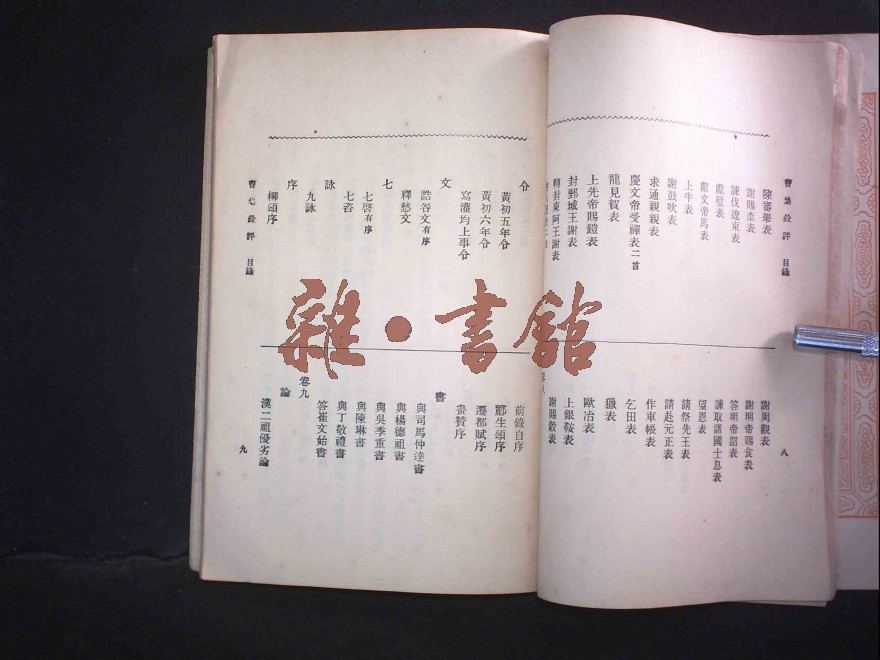 曹集銓評 目錄
陳審舉表
謝賜柰表
諫伐遼東表
獻璧表
獻文帝馬表
上牛表
謝鼓吹表
求通親親表
慶文帝受禪表二首
龍見賀表
上先帝賜鎧表
封鄄城王謝表
轉封東阿王謝表
謝周觀表
謝明帝賜食表
答明帝詔表
諫取諸國士息表
望恩表
請祭先王表
請赴元正表
作車帳表
乞田表
獵表
歐冶表
上銀鞍表
謝賜穀表
八
令
黃初五年令
黃初六年令
寫灌均上事令
文
誥咎文有序
釋愁文
七
七啓有序
七咨
詠
九詠
序
柳頌序
前錄自序
酈生頌序
遷都賦序
畫贊序
書
與司馬仲達書
與楊德祖書
與吳季重書
與陳琳書
與丁敬禮書
答崔文始書
卷九
論
漢二祖優劣論
曹集銓評 目錄
九
雜·書館